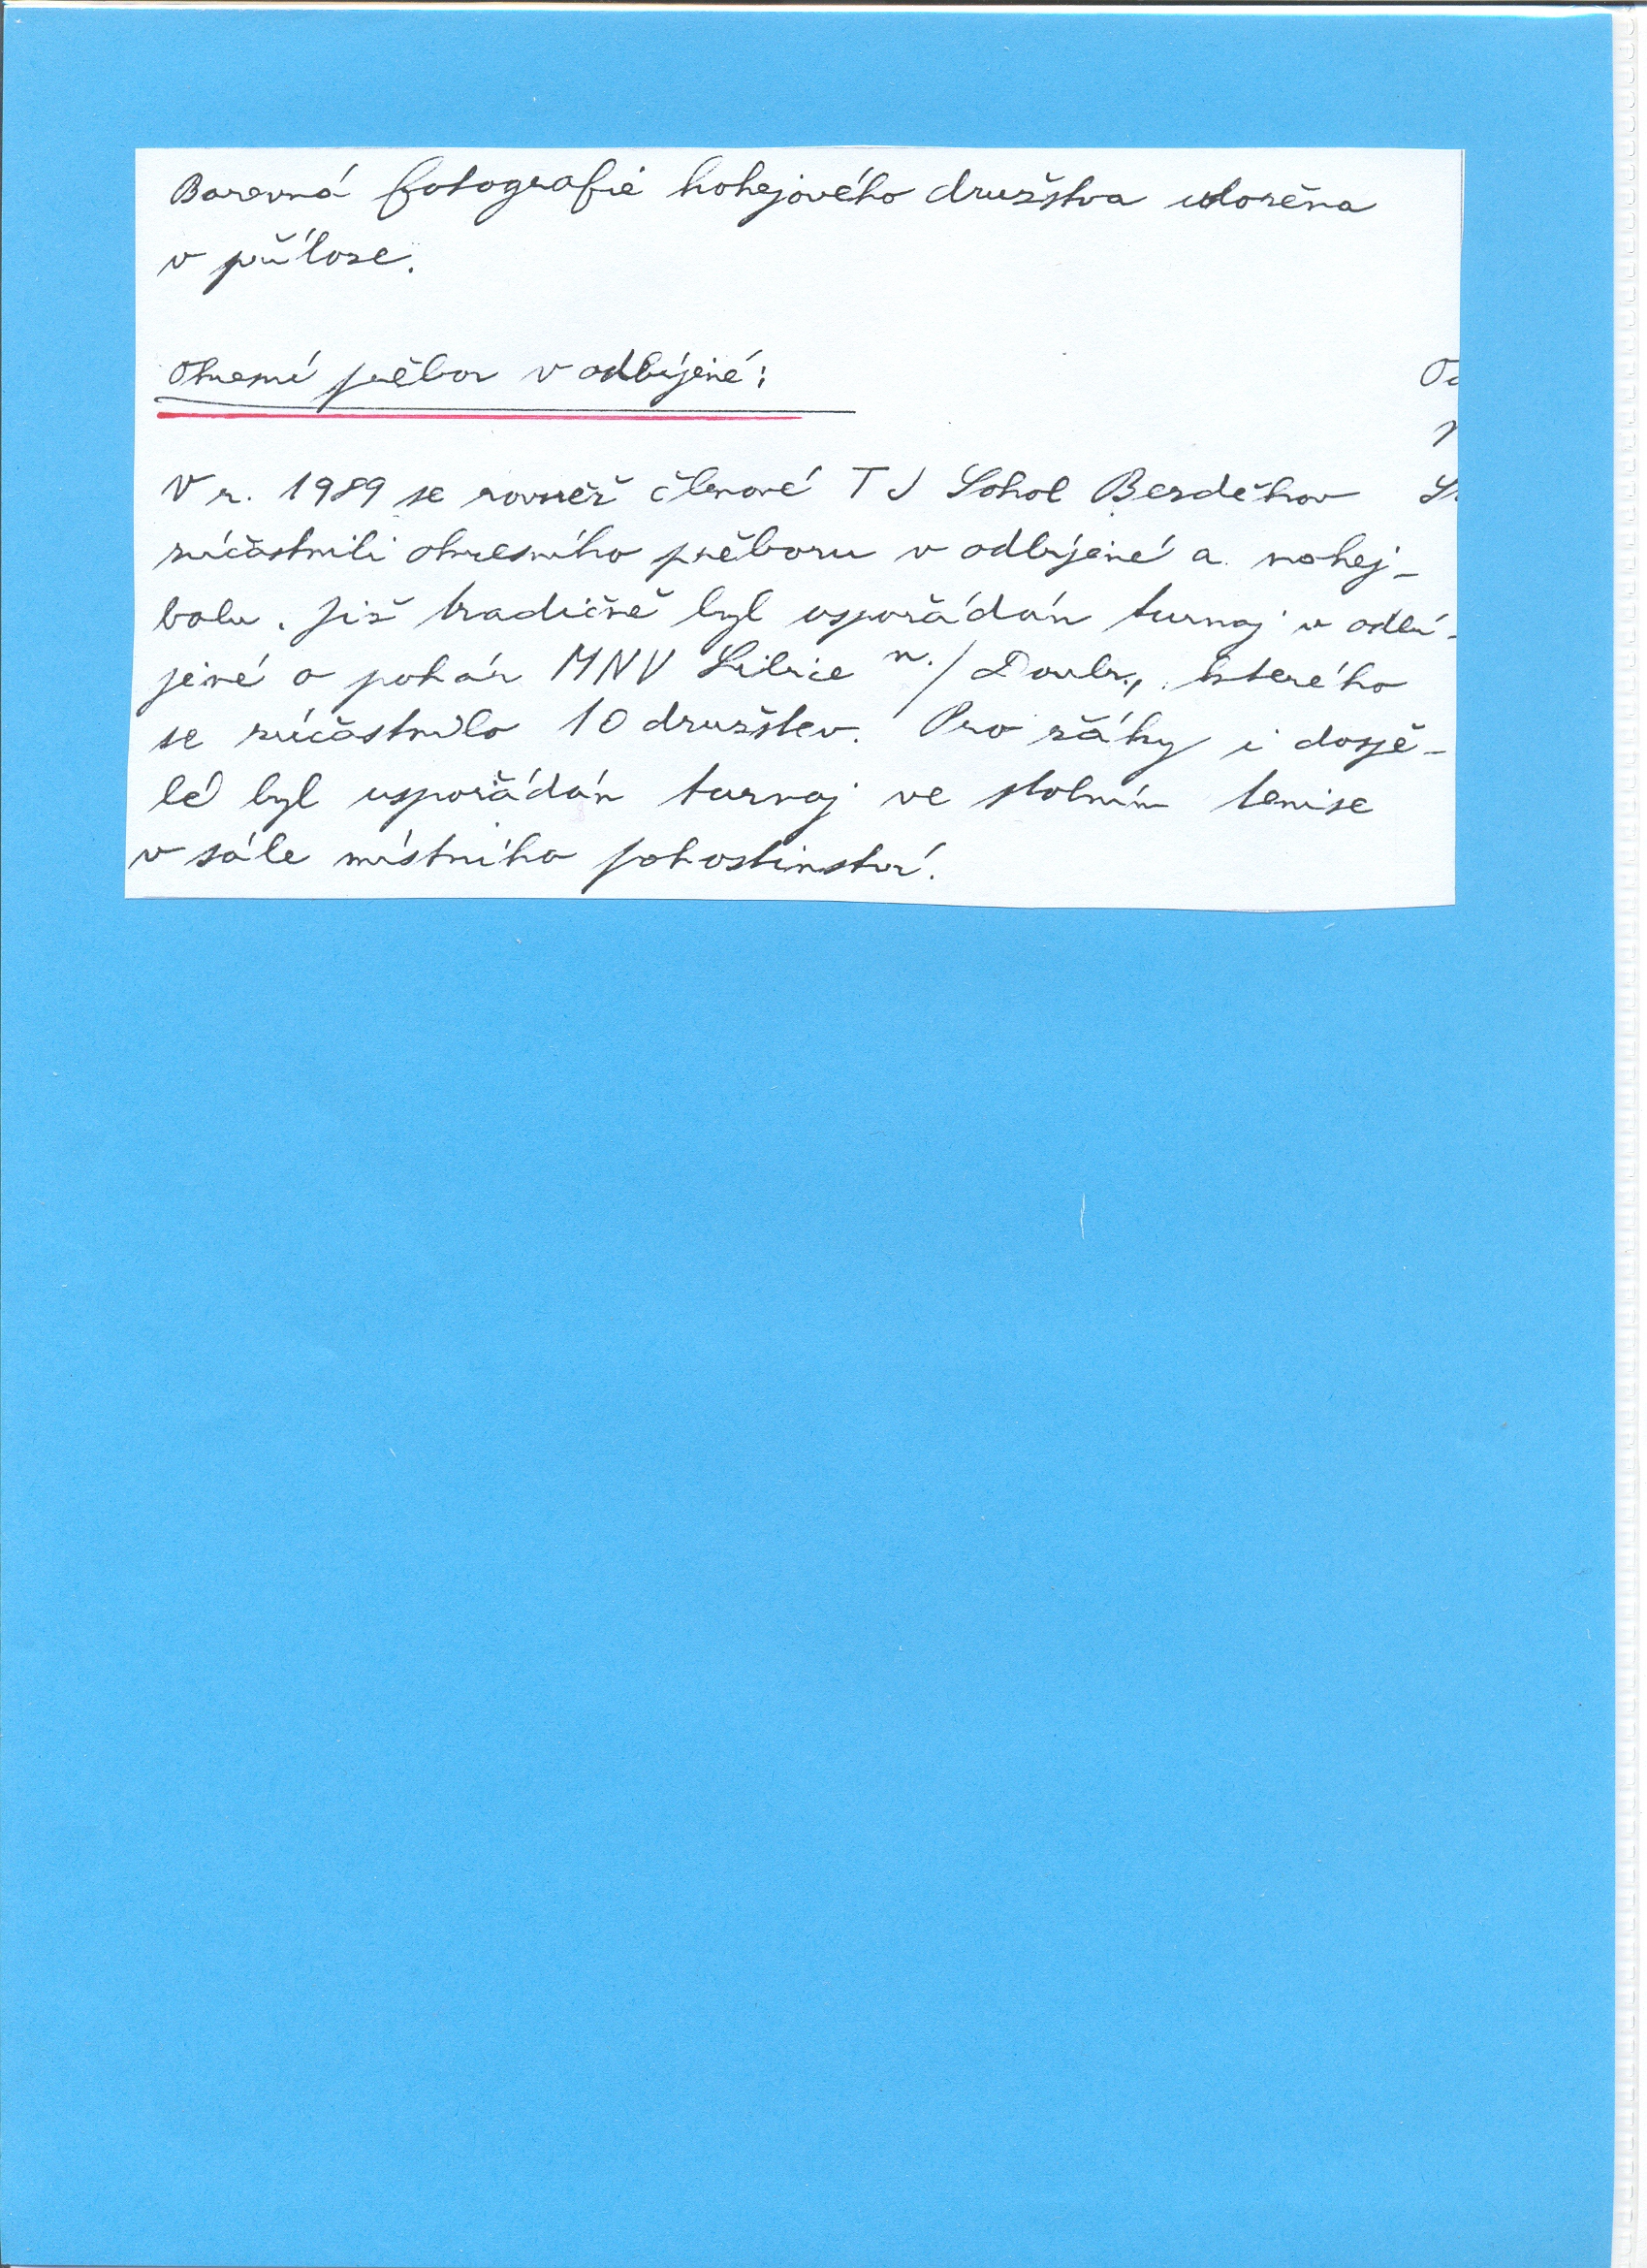 Barevná fotografie hokejového družstva uložena
v příloze.
Okresní přebor v odbíjené:
V r. 1989 se rovněž členové TJ Sokol Bezděkov
zúčastnili okresního přeboru v odbíjené a nohej-
balu. Již tradičně byl uspořádán turnaj v odbí-
jené o pohár MNV Libice n./Doubr., kterého
se zúčastnilo 10 družstev. Pro žáky i dospě-
lé byl uspořádán turnaj ve stolním tenise
v sále místního pohostinství.